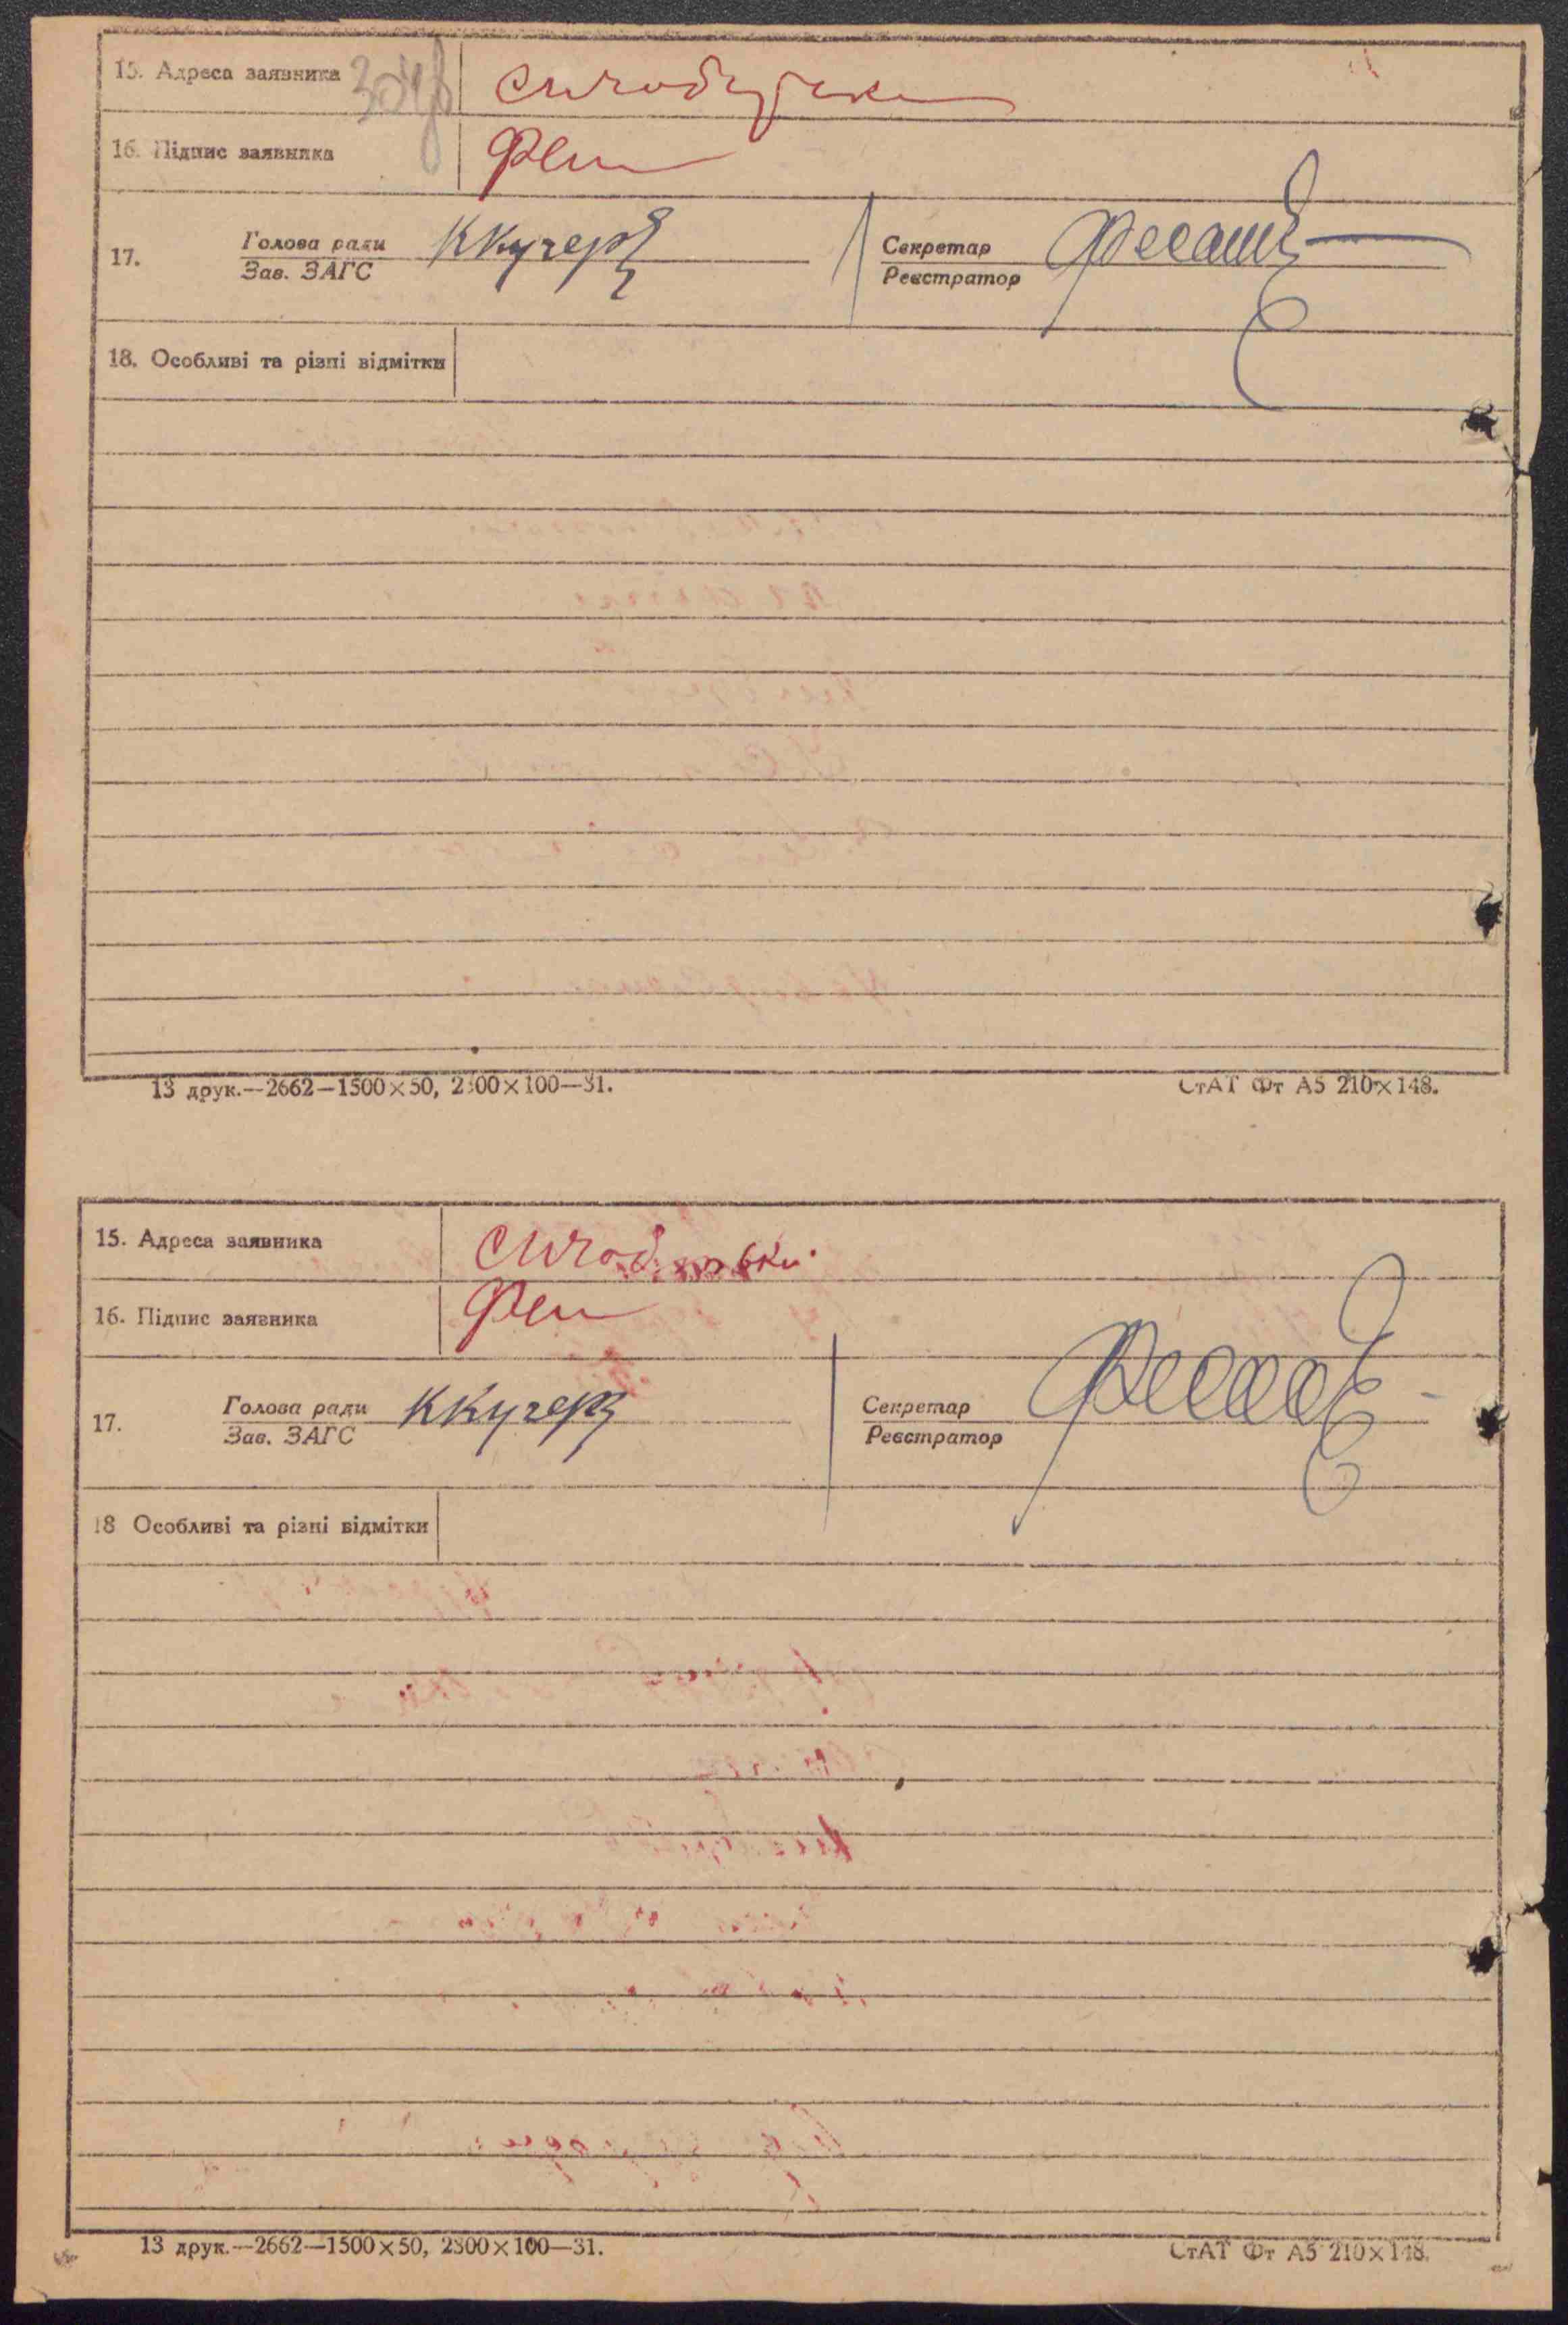 15. Адреса заявника
16. Підпис заявника
Фен
17. Голова ради ККучер Секретар
Зав. ЗАГС Реєстратор
18. Особливі та різні відмітки
13 друк.—2662—1500×50, 2300×100—31. СтАТ Фт А5 210×148.
15. Адреса заявника
16. Підпис заявника
Фен
17. Голова ради ККучер Секретар
Зав. ЗАГС Реєстратор
18 Особливі та різні відмітки
13 друк.—2662—1500×50, 2300×100—31. СтАТ Фт А5 210×148.